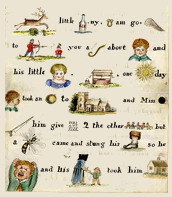 little ny, I am go
to you a about and
his little one day
took an to and Mim
him give 2 the other but
a came and stung his so he
and his took him